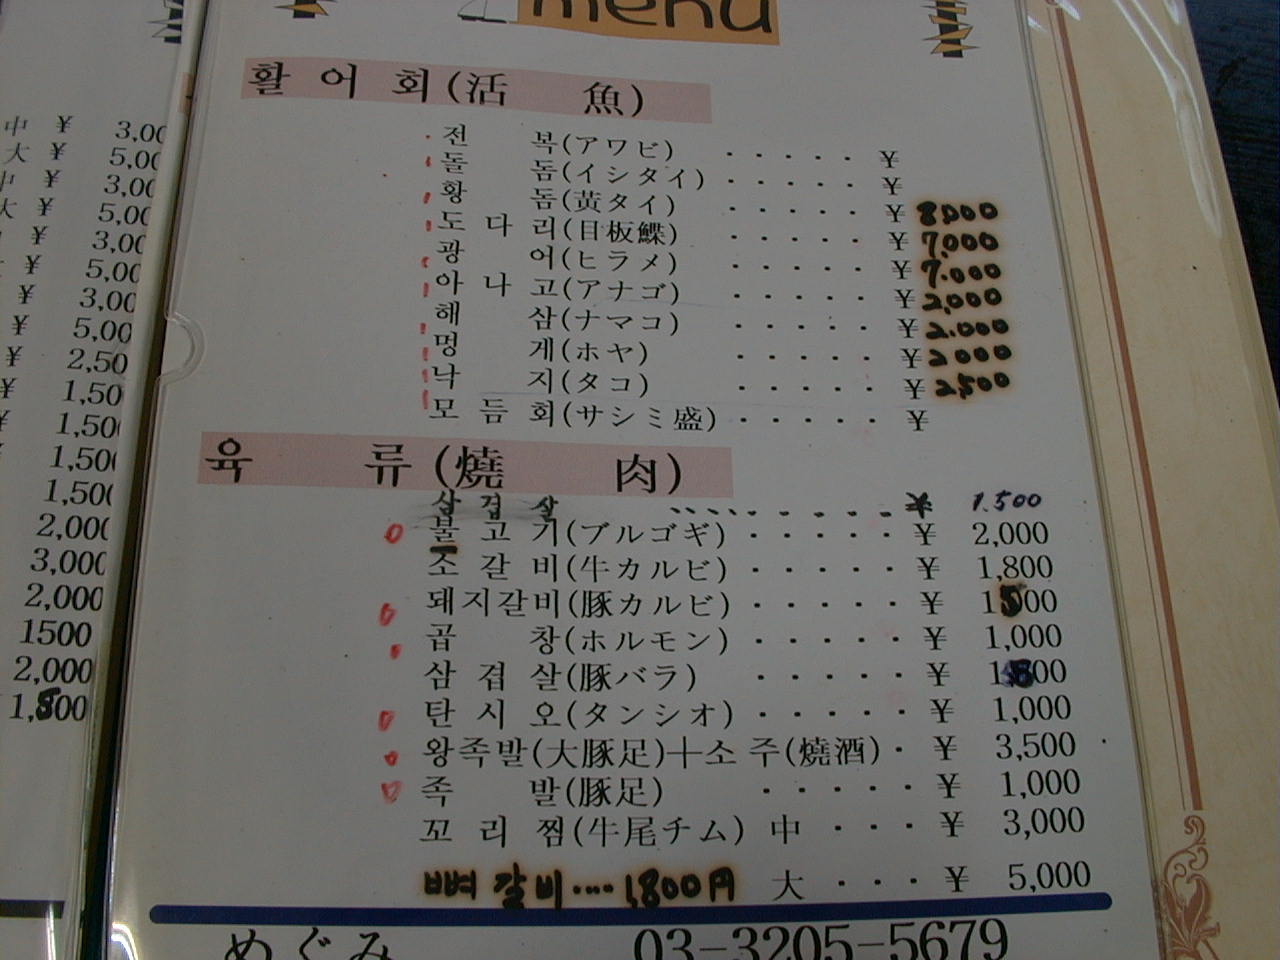 menu
활어회(活 魚)
전 복(アワビ) ····· ¥
돌 돔(イシタイ) ····· ¥
황 돔(黃タイ) ····· ¥ 8,000
도다리(目板鰈) ····· ¥ 7,000
광 어(ヒラメ) ····· ¥ 7,000
아나고(アナゴ) ····· ¥ 2,000
해 삼(ナマコ) ····· ¥ 2,000
멍 게(ホヤ) ····· ¥ 2000
낙 지(タコ) ····· ¥ 2,500
모듬회(サシミ盛) ····· ¥
육 류(燒 肉)
삼겹살 ········ ¥ 1.500
불고기(ブルゴギ) ····· ¥ 2,000
소갈비(牛カルビ) ····· ¥ 1,800
돼지갈비(豚カルビ) ····· ¥ 1500
곱 창(ホルモン) ····· ¥ 1,000
삼겹살(豚バラ) ····· ¥
탄시오(タンシオ) ····· ¥ 1,000
왕족발(大豚足)十소주(燒酒) · ¥ 3,500
족 발(豚足) ····· ¥ 1,000
꼬리찜(牛尾チム) 中 ··· ¥ 3,000
뼈갈비···· 1,800円 大 ··· ¥ 5,000
めぐみ 03-3205-5679
中 ¥ 3,00
大 ¥ 5,00
中 ¥ 3,00
大 ¥ 5,00
¥ 3,00
¥ 5,00
¥ 3,00
¥ 5,00
¥ 2,50
¥ 1,50
¥ 1,50
1,500
1,500
2,000
3,000
2,000
1500
2,000
1,800